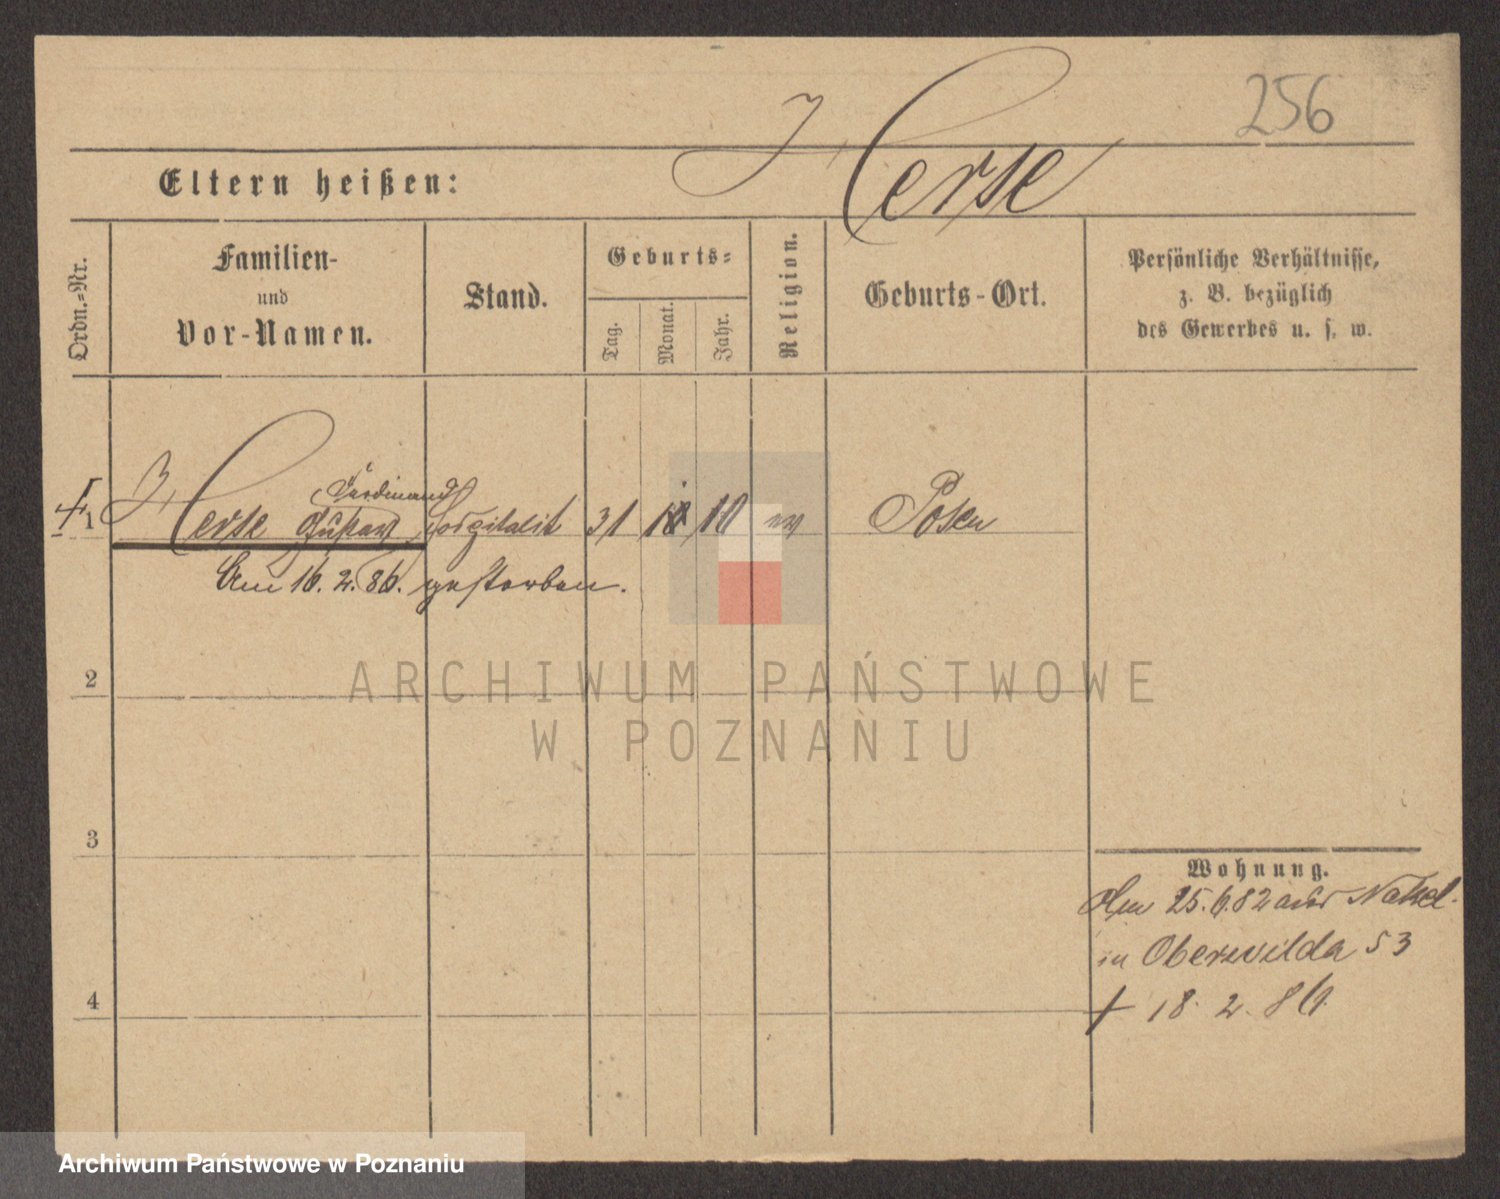 256
Herse
Eltern heißen:
Ordn.-Nr.
Familien-
und
Vor-Namen.
Stand.
Geburts-
Tag.
Monat.
Jahr.
Religion.
Geburts-Ort.
Persönliche Verhältnisse,
z. B. bezüglich
des Gewerbes u. s. w.
Ferdinand
1 Herse Gustav Hospitalit 31 10 ev Posen
Am 16. 2. 86. gestorben.
2
3
4
Wohnung.
Am 25.6.82 aus Nakel
in Oberwilda 53
† 18. 2. 86.
ARCHIWUM PAŃSTWOWE
W POZNANIU
Archiwum Państwowe w Poznaniu